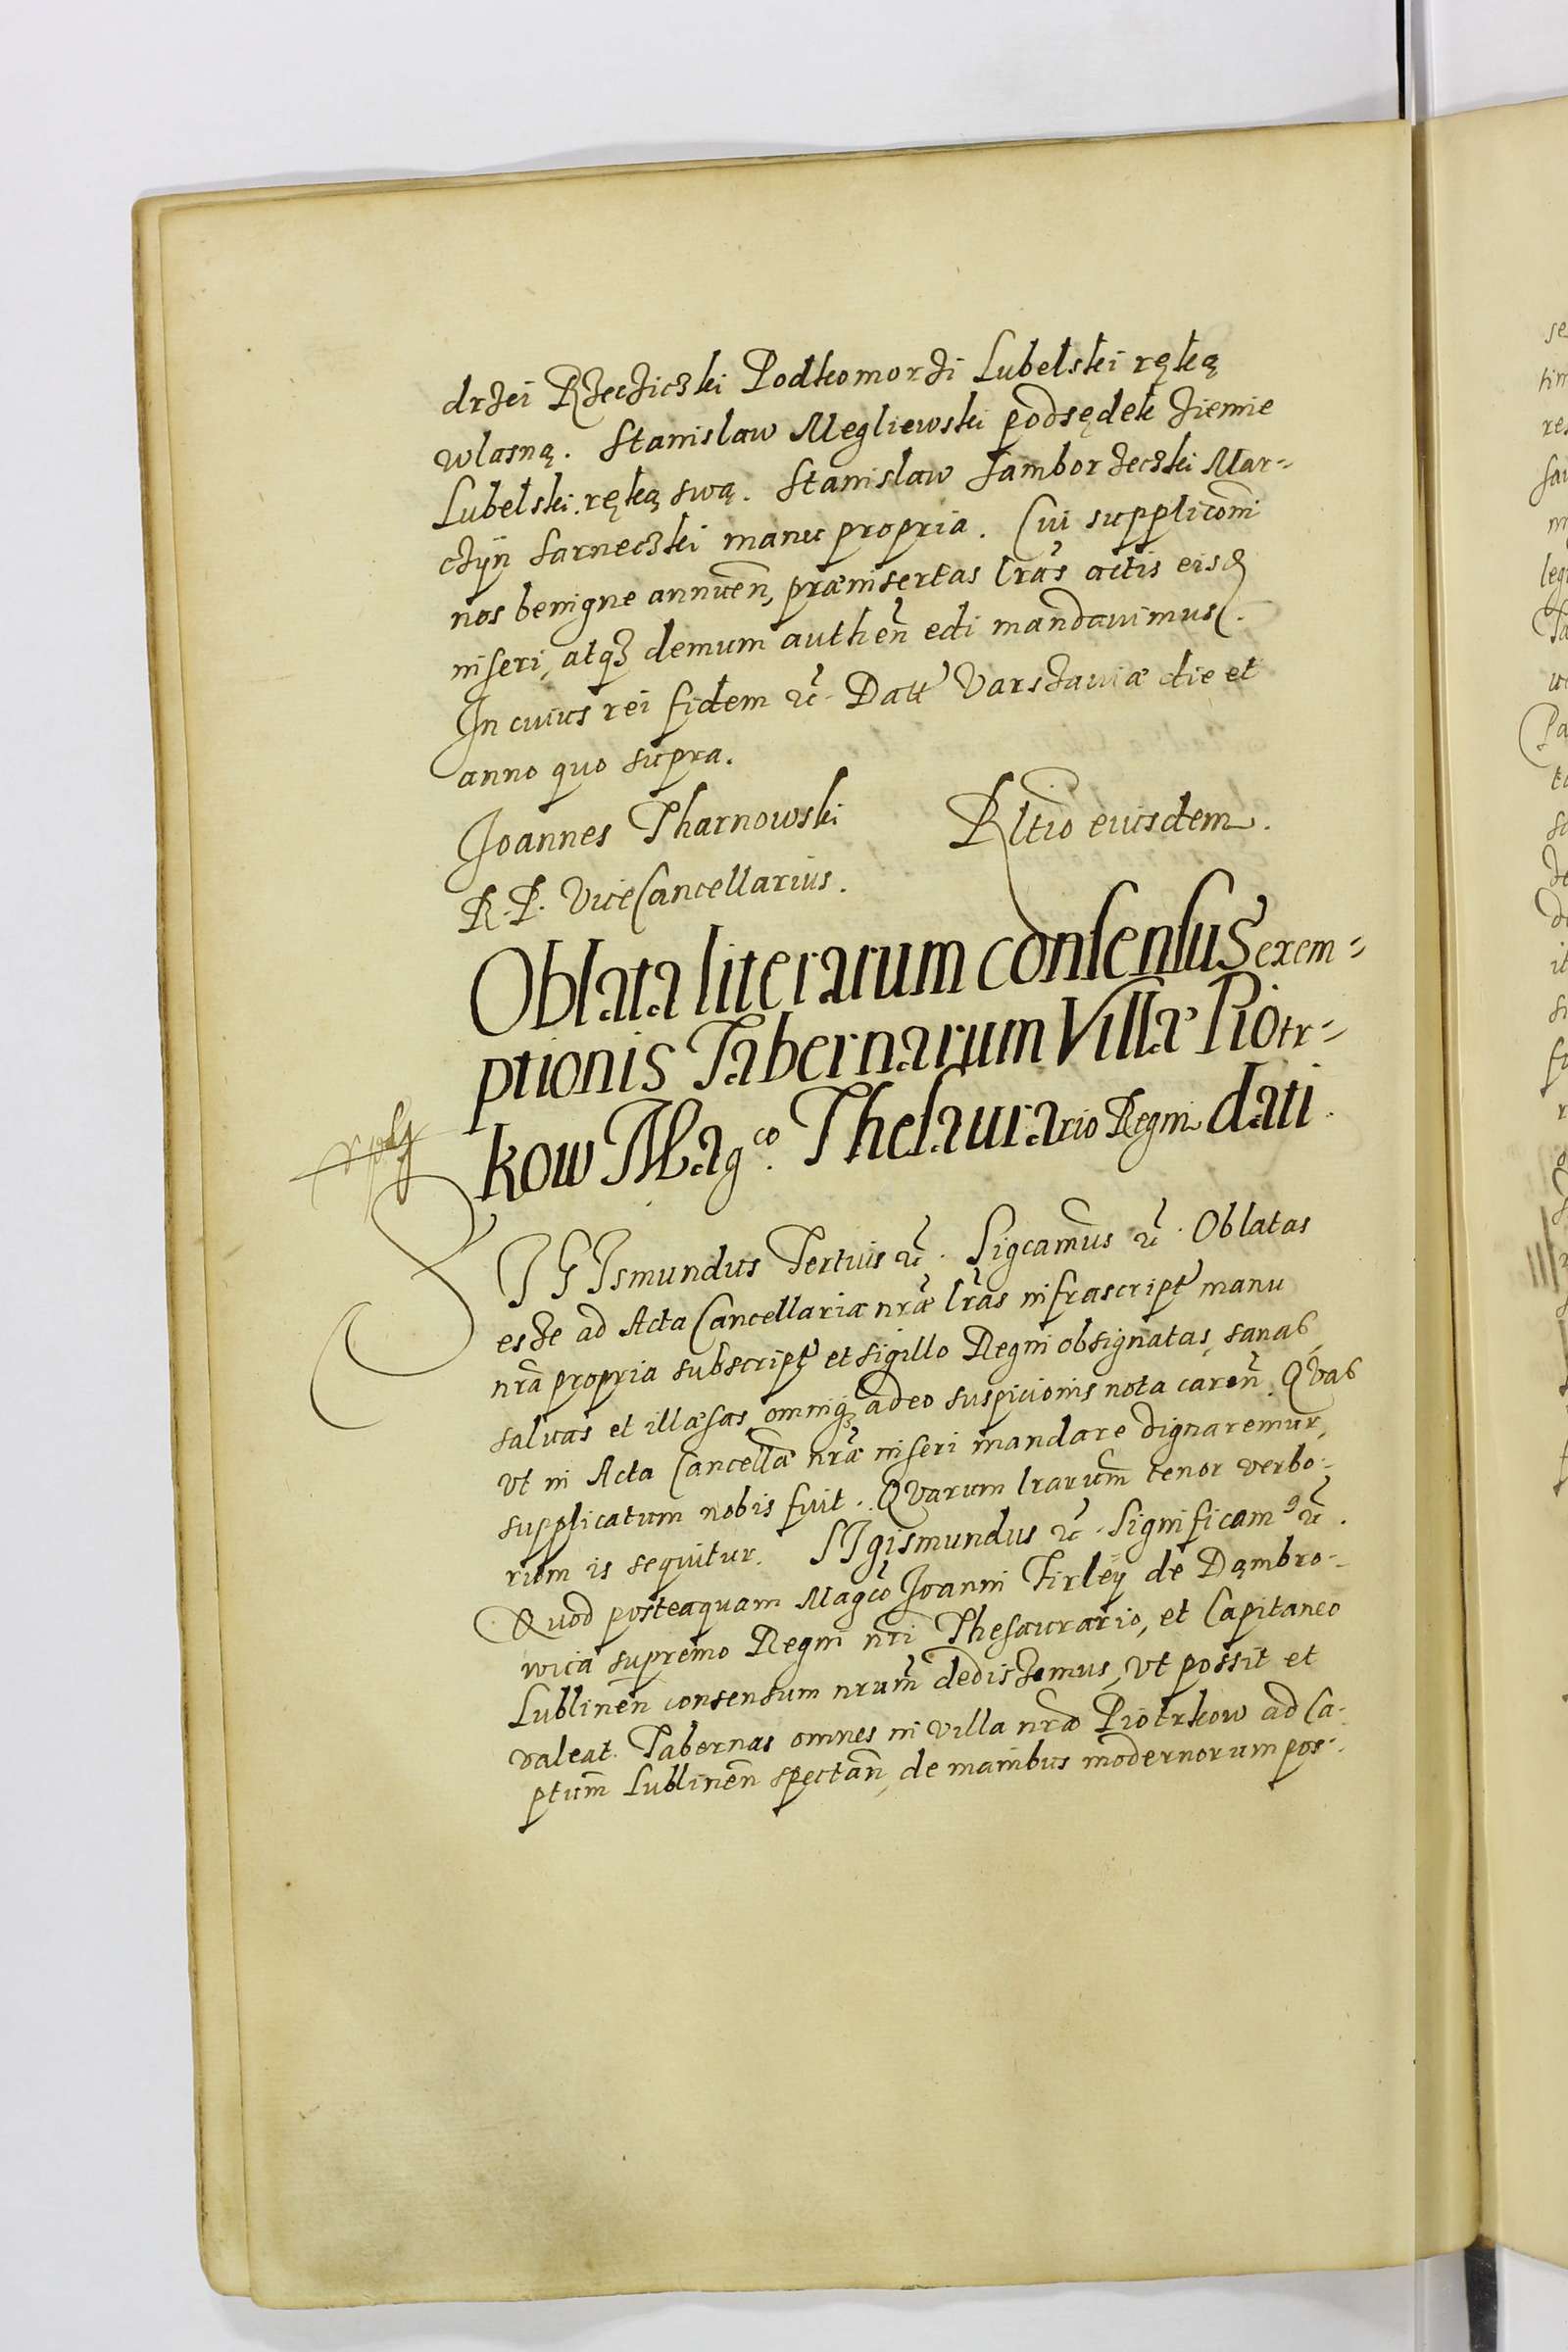 drzei Rzecziczki Podkomorzi Lubelski ręką
wlasną. Stanislaw Megliewski podsędek ziemie
Lubelski ręką swą. Stanislaw Samborzeczki Mar-
czÿn Sarneczki manu propria. Cui supplicōni
nos benigne annuen̄, præinsertas lr̄as actis eisd
inseri, atq₃ demum authen̄ edi mandavimus.
In cuius rei fidem ꝛc̄. Datt Varszaviæ die et
anno quo supra.
Joannes Tharnowski Rltio eiusdem.
R. P. ViceCancellarius.
Oblata literarum consensus exem-
ptionis Tabernarum Villæ Piotr-
kow Mag.co Thesaurario Regni dati
SIGIsmundus Tertius ꝛc̄. Sigcam̄us ꝛc̄. Oblatas
esze ad Acta Cancellariæ nr̄æ lr̄as infrascript manu
nr̄a propria subscript et sigillo Regni obsignatas, sanas,
salvas et illæsas, omniq₃ adeo suspicionis nota caren̄. Qvas
vt in Acta Cancellæ nr̄æ inseri mandare dignaremur,
supplicatum nobis fuit. Qvarum lrarum̄ tenor verbo-
rum is sequitur. SIgismundus ꝛc̄. Significam9 ꝛc̄.
Quod posteaquam Magcō Joanni Firleÿ de Dąmbro-
wica supremo Regni nr̄i Thesaurario, et Capitaneo
Lublinen̄ consensum nrum̄ dediszemus, vt possit et
valeat. Tabernas omnes in villa nr̄a Piotrkow ad Ca-
ptum̄ Lublinen̄ spectan̄, de manibus modernorum pos-